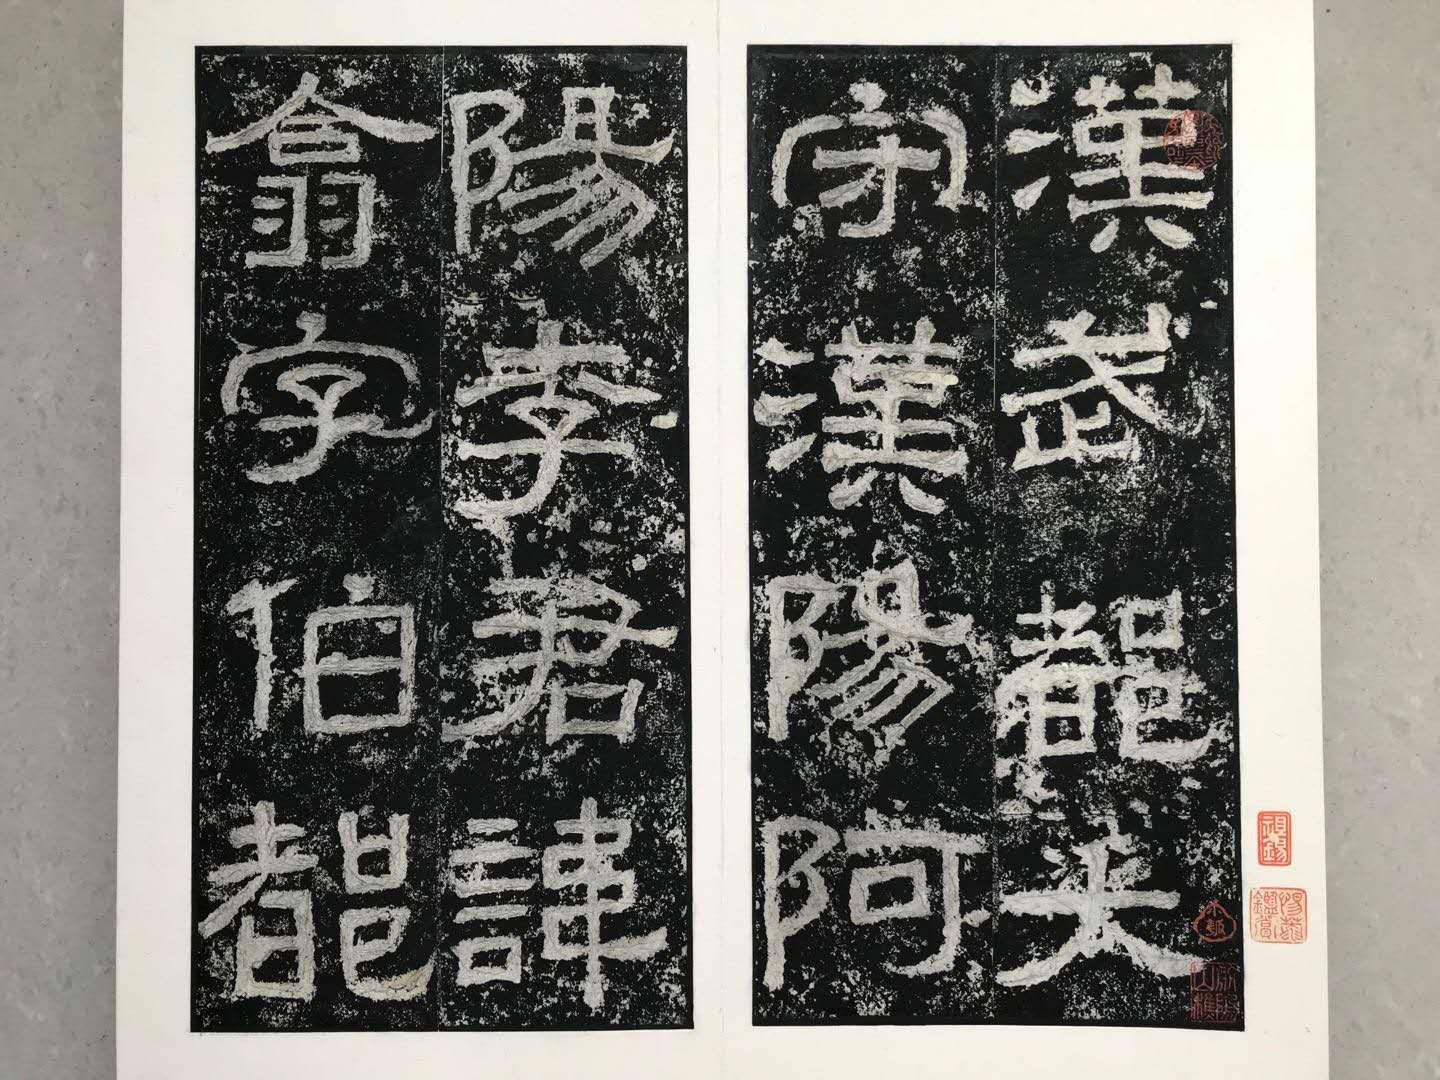 漢武都太
守漢陽阿
陽李君諱
翕字伯都